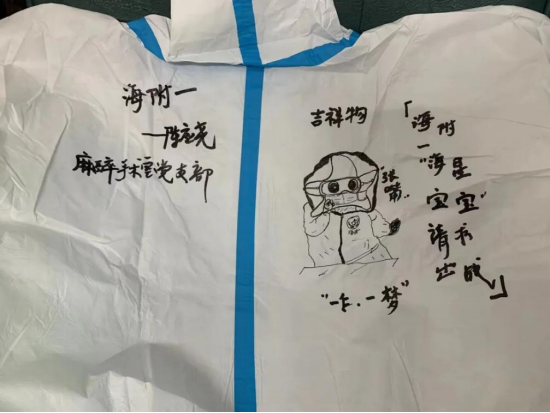 海附一
麻醉手术室党支部
吉祥物
"张嘴"
一梦"
「海附
一
"海星
宝宝"
请求
出战」